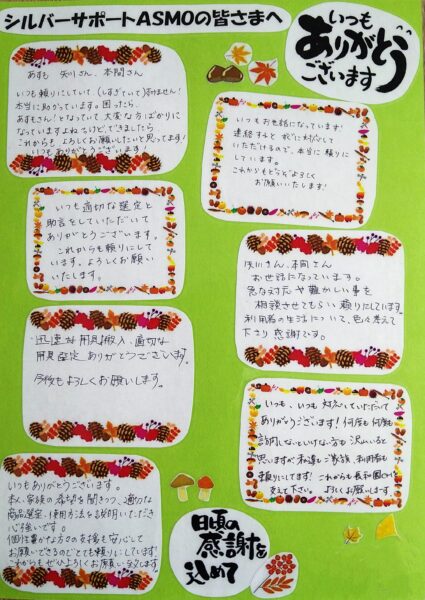 シルバーサポートASMOの皆さまへ
いつも
ありがとう
ございます
あすも 矢川さん、本間さん
いつも頼りにしていて、(しすぎていて)すみません!
本当に助かっています。困ったら、
あすもさん!となっていて大変な方ばかりに
なっていますよね
これからも よろしくお願いしたいと思ってます!
いつもありがとうございます!
いつもお世話になっています!
連絡するとすぐに対応して
いただけるので、本当に頼りに
しています。
これからもどうぞよろしく
お願いいたします!
いつも適切な選定と
助言をしていただいて
ありがとうございます。
これからも頼りにして
います。よろしくお願い
いたします。
矢川さん、本間さん
お世話になっています。
急な対応や難かしい事を
相談させてもらい頼りにしています。
利用者の生活について、色々考えて
下さり感謝です。
迅速な用具搬入、適切な
用具選定ありがとうございます。
今後もよろしくお願いします。
いつも、いつも対応していただいて
ありがとうございます!何度も何度も
訪問しないといけない方も沢山いると
思いますが私達もご家族、利用者も
頼りにしてます!これからも長和園の
支えて下さい。よろしくお願いします
いつもありがとうございます。
本人、家族の希望を聞きつつ、適切な
商品選定、使用方法を説明いただき
心強いです。
個性豊かな方の支援も安心して
お願いできるのでとても頼りにしています!
これからもぜひよろしくお願い致します。
日頃の
感謝を
込めて